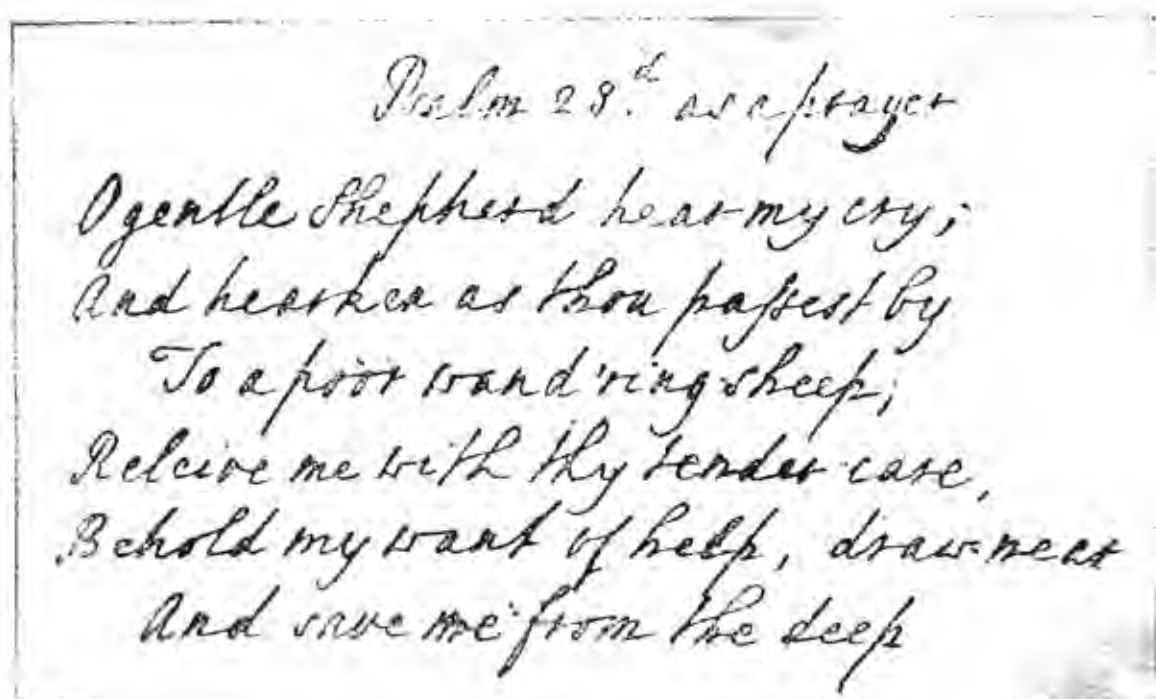 Psalm 23.d as a prayer
O gentle Shepherd hear my cry;
And hearken as thou passest by
To a poor wand'ring sheep;
Releive me with thy tender care,
Behold my want of help, draw near
And save me from the deep